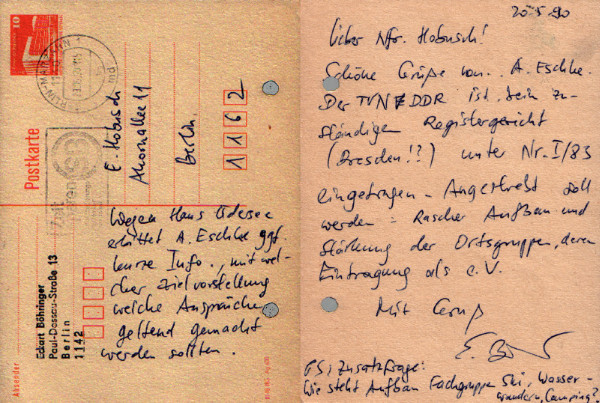 10
Postkarte
E. Hobusch
Ahornallee 11
Berlin
1162
Wegen Haus Üdersee
erbittet A. Eschke ggf.
kurze Info., mit wel-
cher Zielvorstellung
welche Ansprüche
geltend gemacht
werden sollten.
Absender
Eckart Böhringer
Paul-Dessau-Straße 13
Berlin
1142
20.5.90
Lieber Nfr. Hobusch!
Schöne Grüße von A. Eschke.
Der TVNF DDR ist beim zu-
ständigen Registergericht
(Dresden!?) unter Nr. I/83
eingetragen - Angestrebt soll
werden: Rascher Aufbau und
Stärkung der Ortsgruppen, deren
Eintragung als e.V.
Mit Gruß
PS: Zusatzfrage:
Wie steht Aufbau Fachgruppen Ski, Wasser-
wandern, Camping?